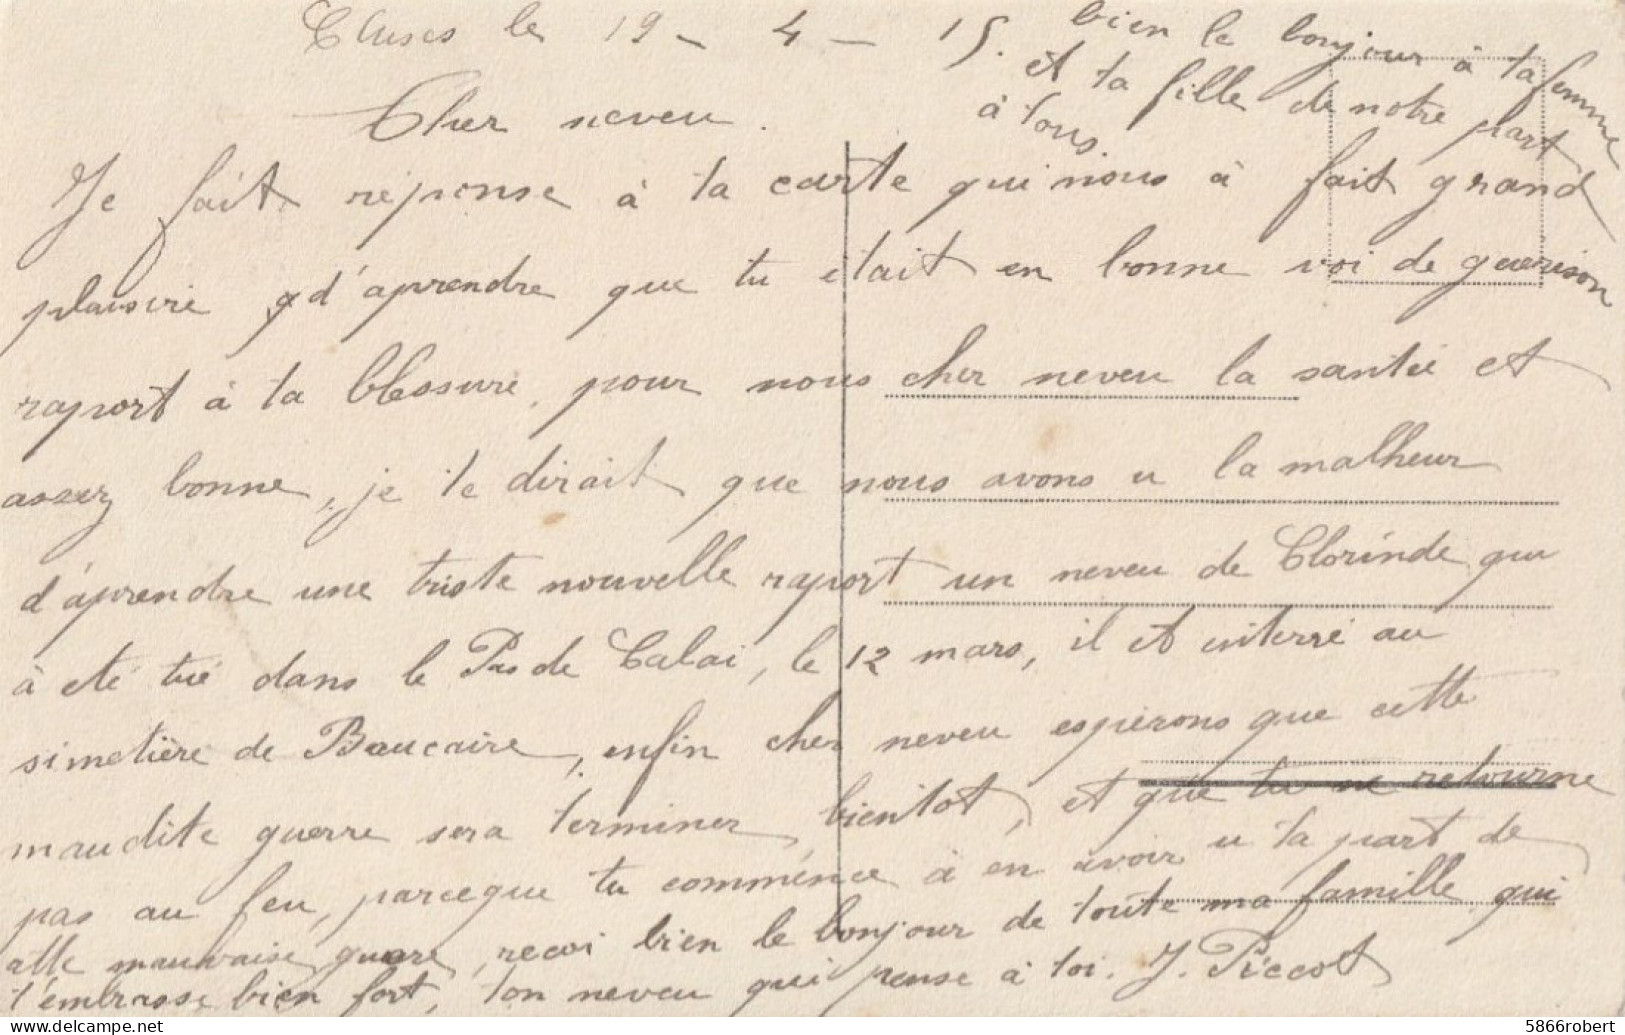 Cluses le 19 - 4 - 15.
bien le bonjour à ta femme
et ta fille de notre part
à tous.
Cher neveu.
Je fait réponse à ta carte qui nous à fait grand
plaisire d'aprendre que tu était en bonne voi de guerison
raport à ta blessure, pour nous cher neveu la santée et
assez bonne, je te dirait que nous avons u la malheur
d'aprendre une triste nouvelle raport un neveu de Clorinde qui
à eté tué dans le Pas de Calai, le 12 mars, il et enterré au
simetière de Baucaire, enfin cher neveu esperons que cette
maudite guerre sera terminer bientot, et que tu ne retourne
pas au feu, parceque tu commence à en avoir u ta part de
atte mauvaise guere, recoi bien le bonjour de toute ma famille qui
t'embrasse bien fort, ton neveu qui pense à toi. J. Piccot
5866robert